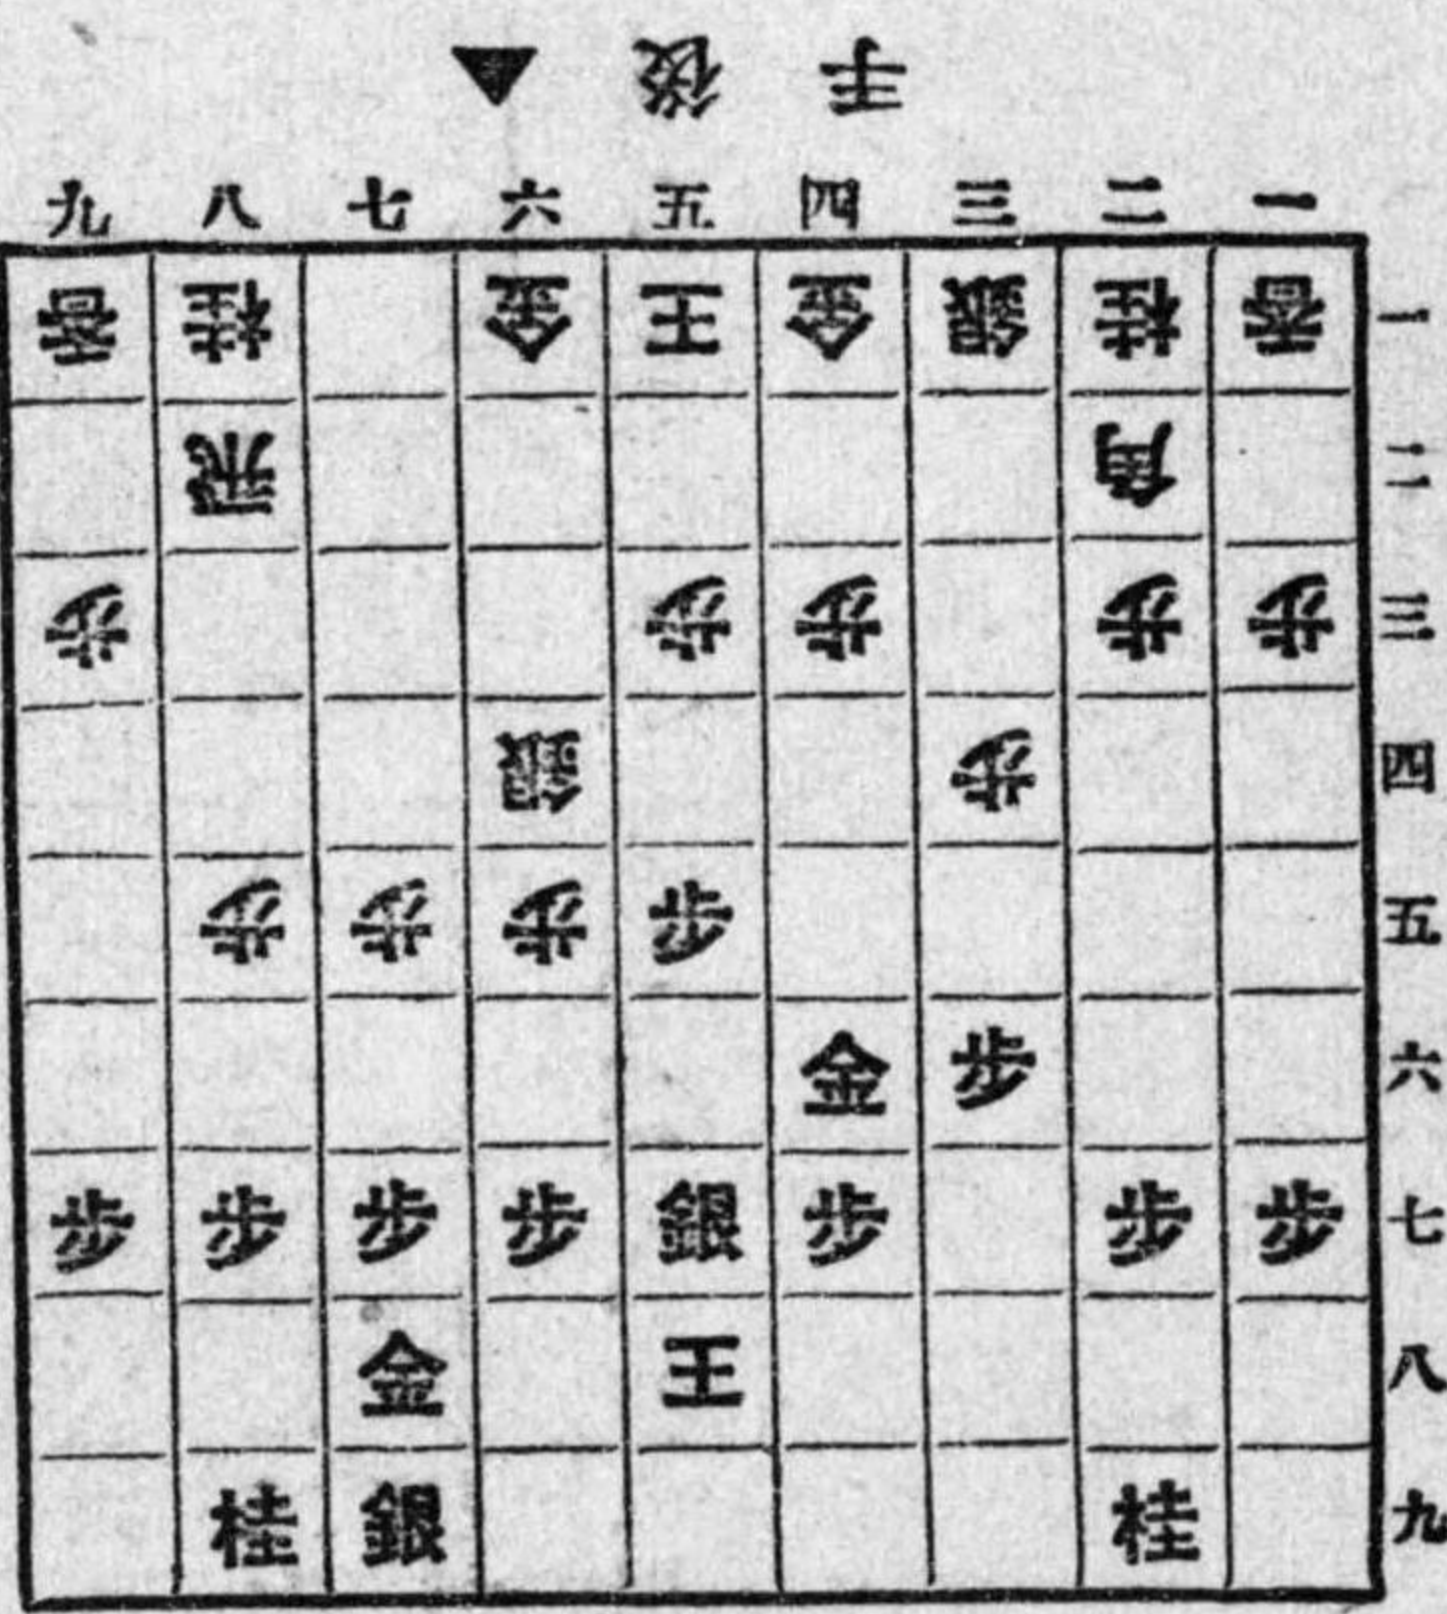 手後▲
九八七六五四三二一
香桂金王金銀桂香一
飛角二
歩歩歩歩歩三
銀歩四
歩歩歩歩五
金歩六
歩歩歩歩銀歩歩歩七
金王八
桂銀桂九